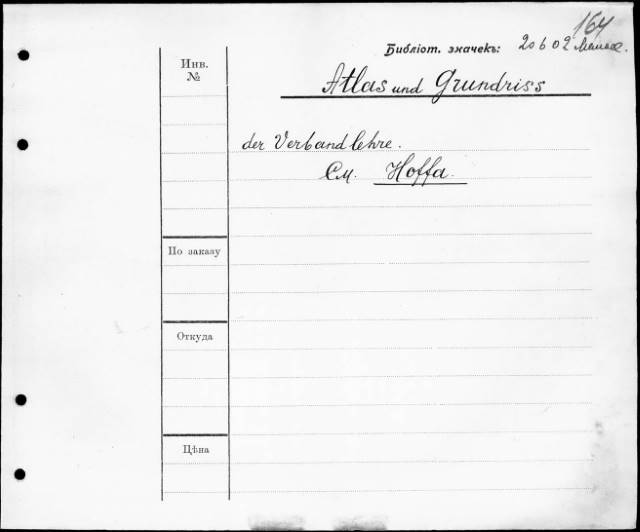 164
Библіот. значекъ: 20602
Инв.
№
Atlas und Grundriss
der Verbandlehre.
См. Hoffa.
По заказу
Откуда
Цѣна